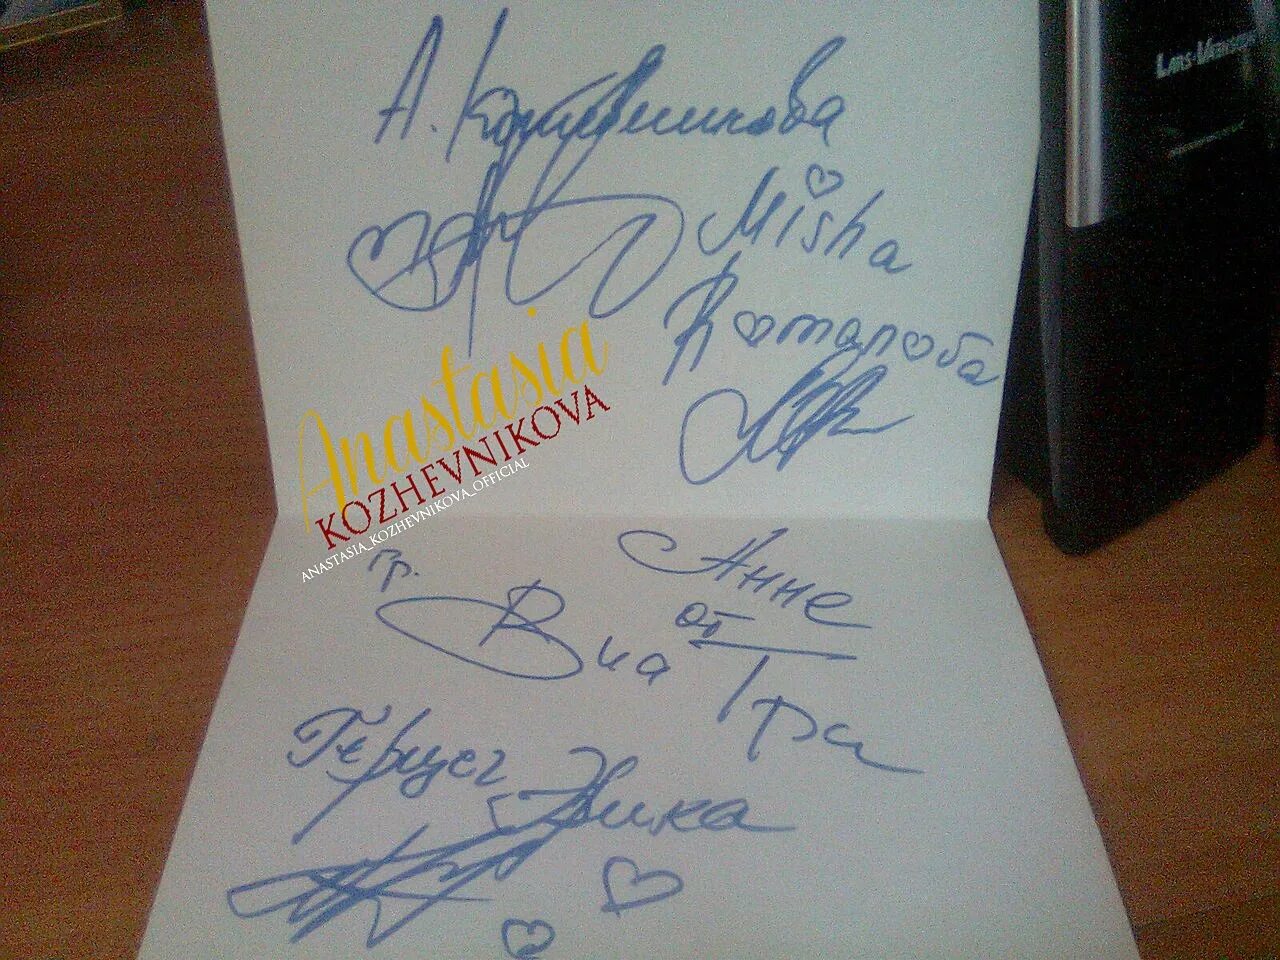 А. Кожевникова
Misha
Romanова
Anastasia
KOZHEVNIKOVA
ANASTASIA_KOZHEVNIKOVA_OFFICIAL
Анне
от
гр.
Виа
Гра
Герцег
Эрика
Lms-